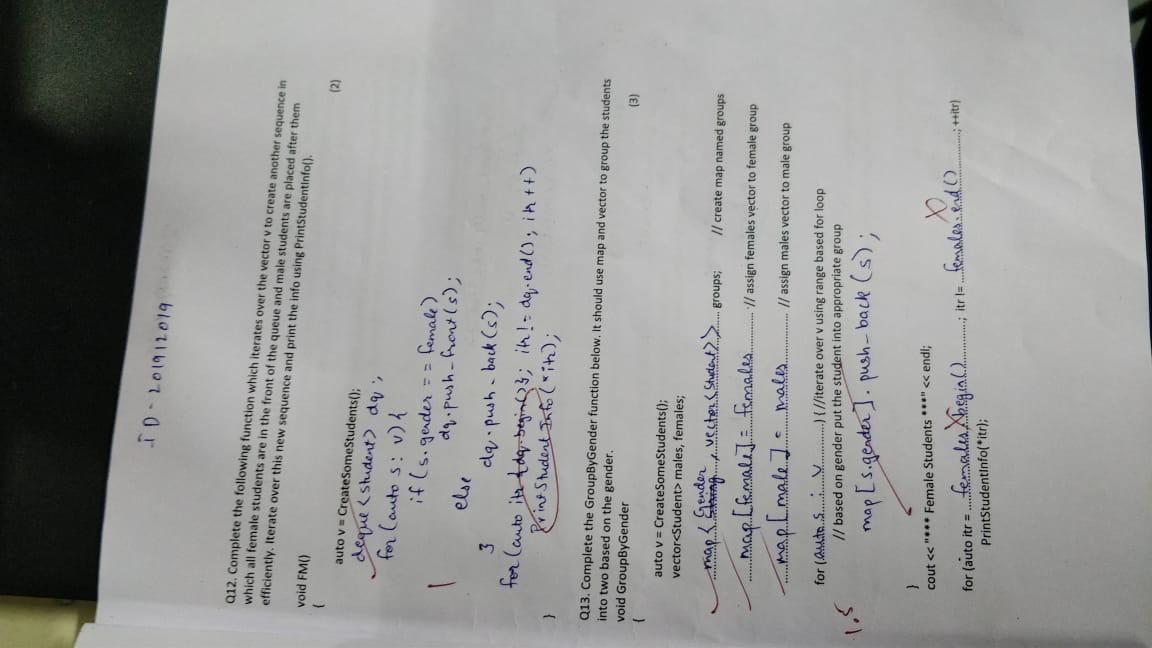 ID - 201912019
Q12. Complete the following function which iterates over the vector v to create another sequence in
which all female students are in the front of the queue and male students are placed after them
efficiently. Iterate over this new sequence and print the info using PrintStudentInfo().
(2)
void FM()
{
auto v = CreateSomeStudents();
deque <student> dq ;
for (auto s : v) {
if (s.gender == female)
dq.push_front(s);
1
else
} dq.push_back(s);
for (auto itr {dq.begin()}; itr != dq.end(); itr ++)
PrintStudentInfo(*itr);
}
Q13. Complete the GroupByGender function below. It should use map and vector to group the students
into two based on the gender.
(3)
void GroupByGender
{
auto v = CreateSomeStudents();
vector<Student> males, females;
map < string Gender , vector<Student>> groups; // create map named groups
map [female] = females // assign females vector to female group
map [male] = males // assign males vector to male group
for (auto s : v) { //iterate over v using range based for loop
// based on gender put the student into appropriate group
1.5
map [s.gender] . push_back (s);
}
cout << "*** Female Students ***" << endl;
for (auto itr = females.begin() ; itr != females.end() ; ++itr)
PrintStudentInfo(*itr);